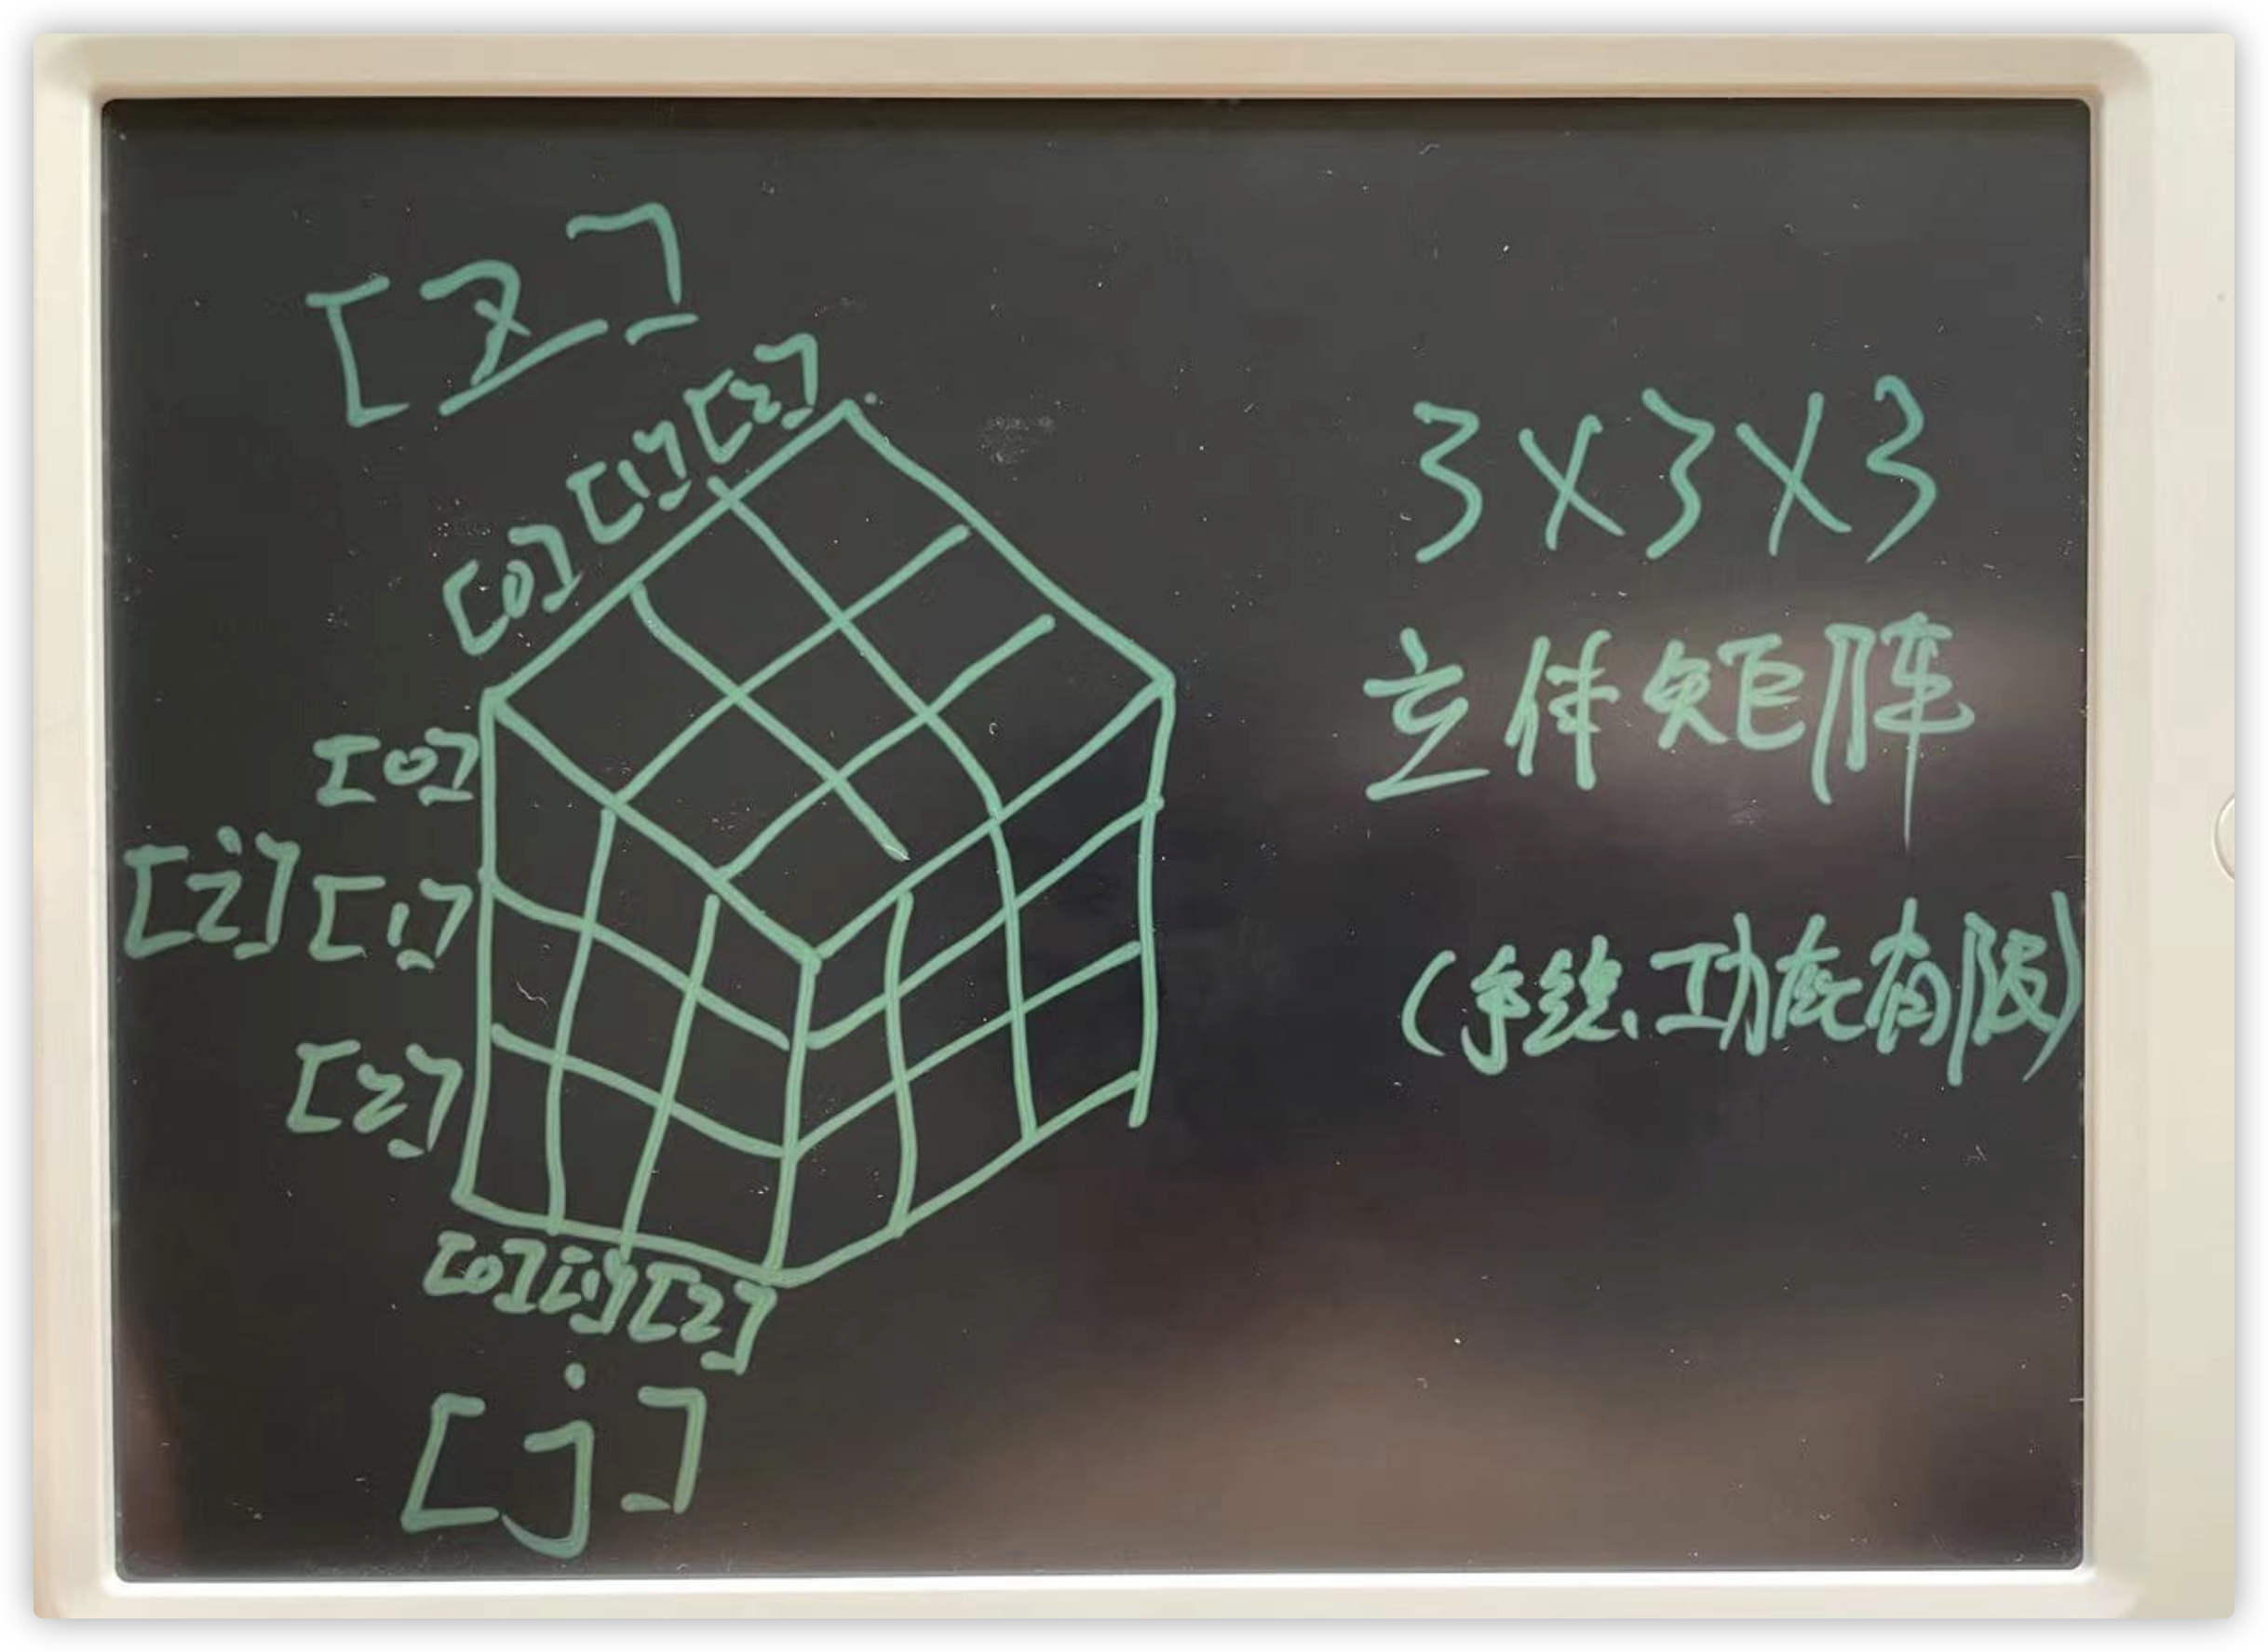 [z]
[0][1][2]
[0]
[i][1]
[2]
[0][1][2]
[j]
3X3X3
立体矩阵
(手绘、功底有限)